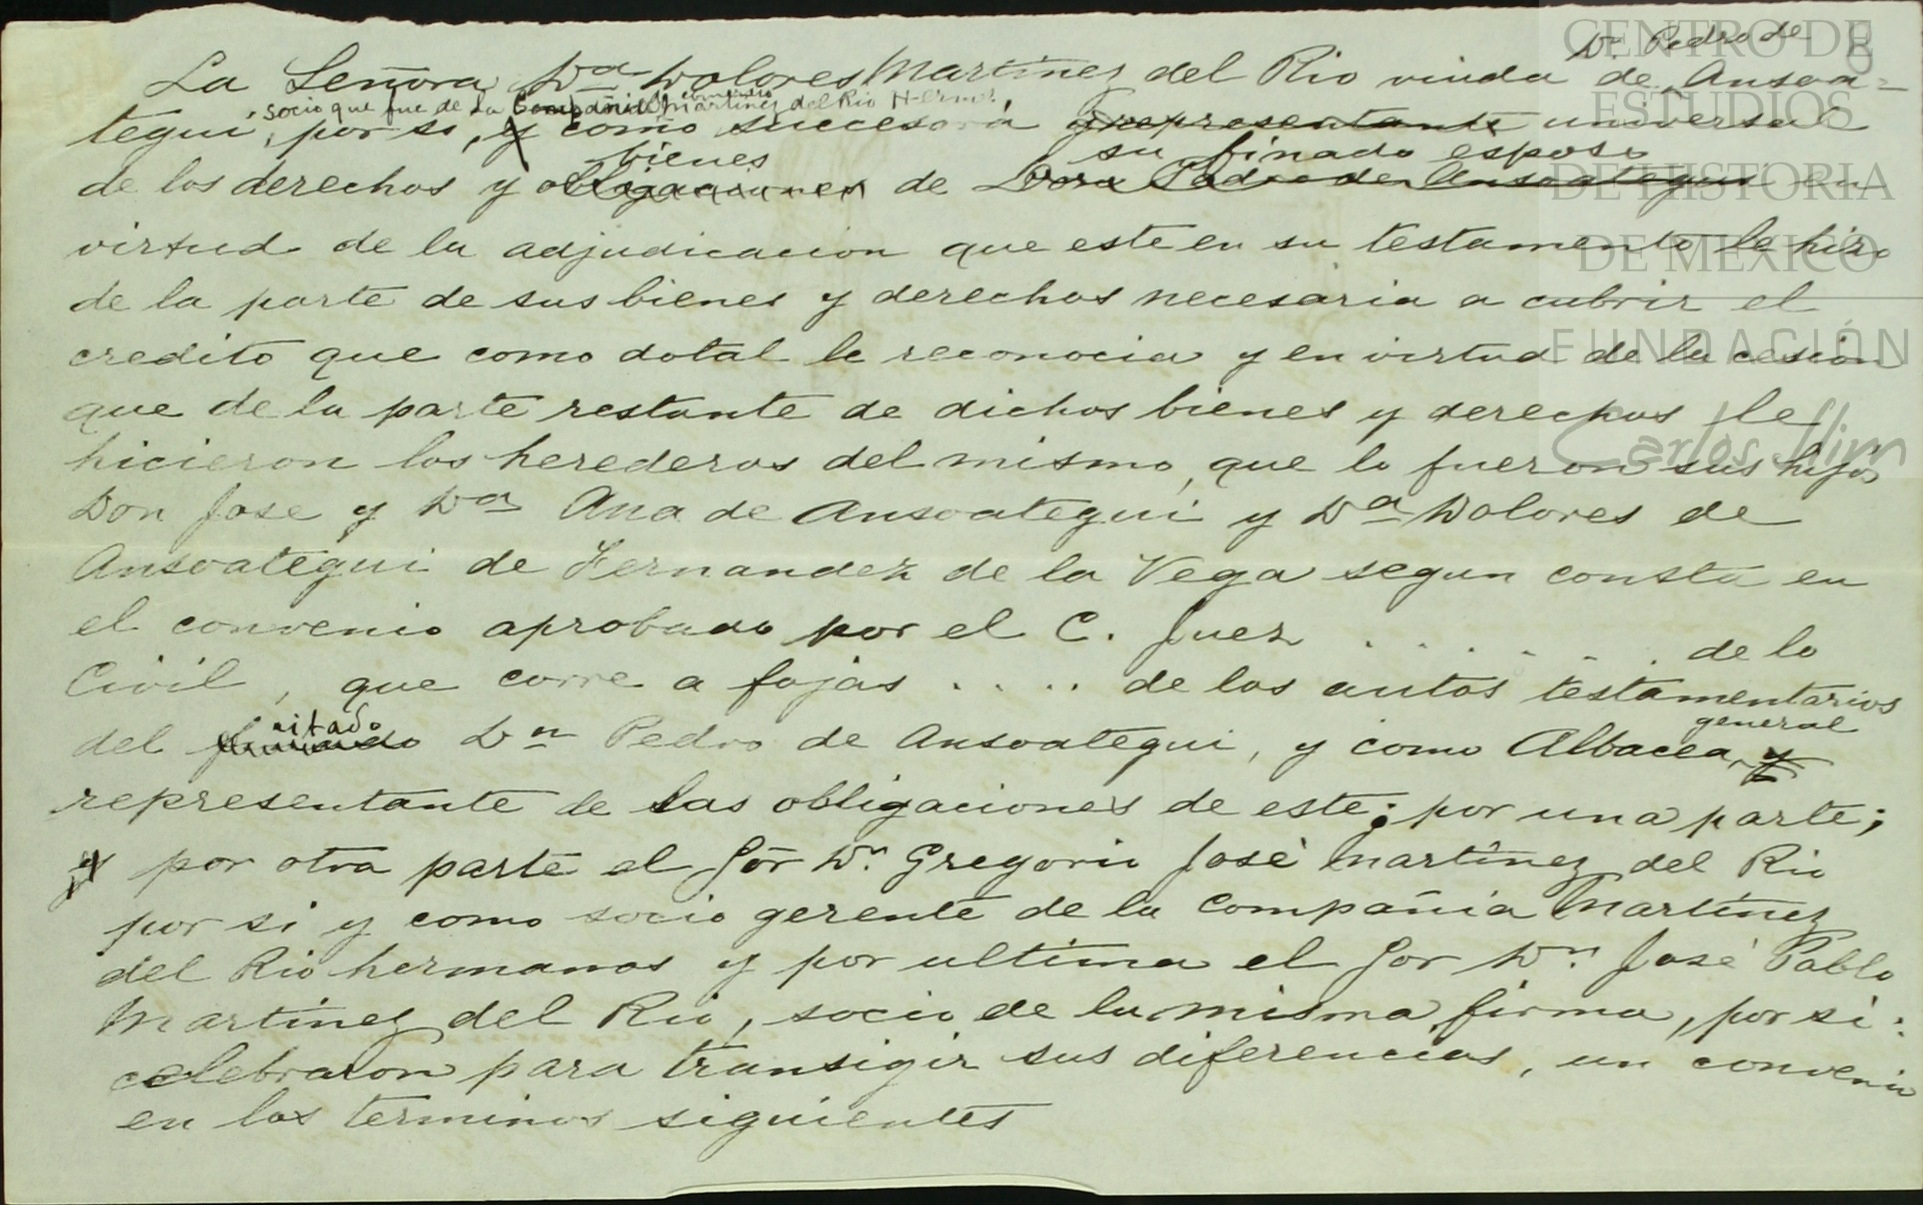 Dn Pedro de
La Señora Da Dolores Martinez del Rio viuda de Ansoa=
socio que fue de la Compañia Martinez del Rio Hermos,
tegui, por si, y como succesora y representante universal
bienes su finado esposo
de los derechos y obligaciones de Don Pedro de Ansoategui en
virtud de la adjudicacion que este en su testamento le hizo
de la parte de sus bienes y derechos necesaria a cubrir el
credito que como dotal le reconocia y en virtud de la cesion
que de la parte restante de dichos bienes y derechos le
hicieron los herederos del mismo, que lo fueron sus hijos
Don Jose y Da Ana de Ansoategui y Da Dolores de
Ansoategui de Fernandez de la Vega segun consta en
el convenio aprobado por el C. Juez . . . . . . . de lo
Civil, que corre a fojas . . . . de los autos testamentarios
citado general
del finado Dn Pedro de Ansoategui, y como Albacea y
representante de las obligaciones de este; por una parte;
y por otra parte el Sor Dn. Gregorio José Martinez del Rio
por si y como socio gerente de la Compañia Martinez
del Rio hermanos y por ultima el Sor Dn. José Pablo
Martinez del Rio, socio de la misma firma, por si:
celebraron para transigir sus diferencias, un convenio
en los terminos siguientes
CENTRO DE
ESTUDIOS
DE HISTORIA
DE MEXICO
FUNDACIÓN
Carlos Slim